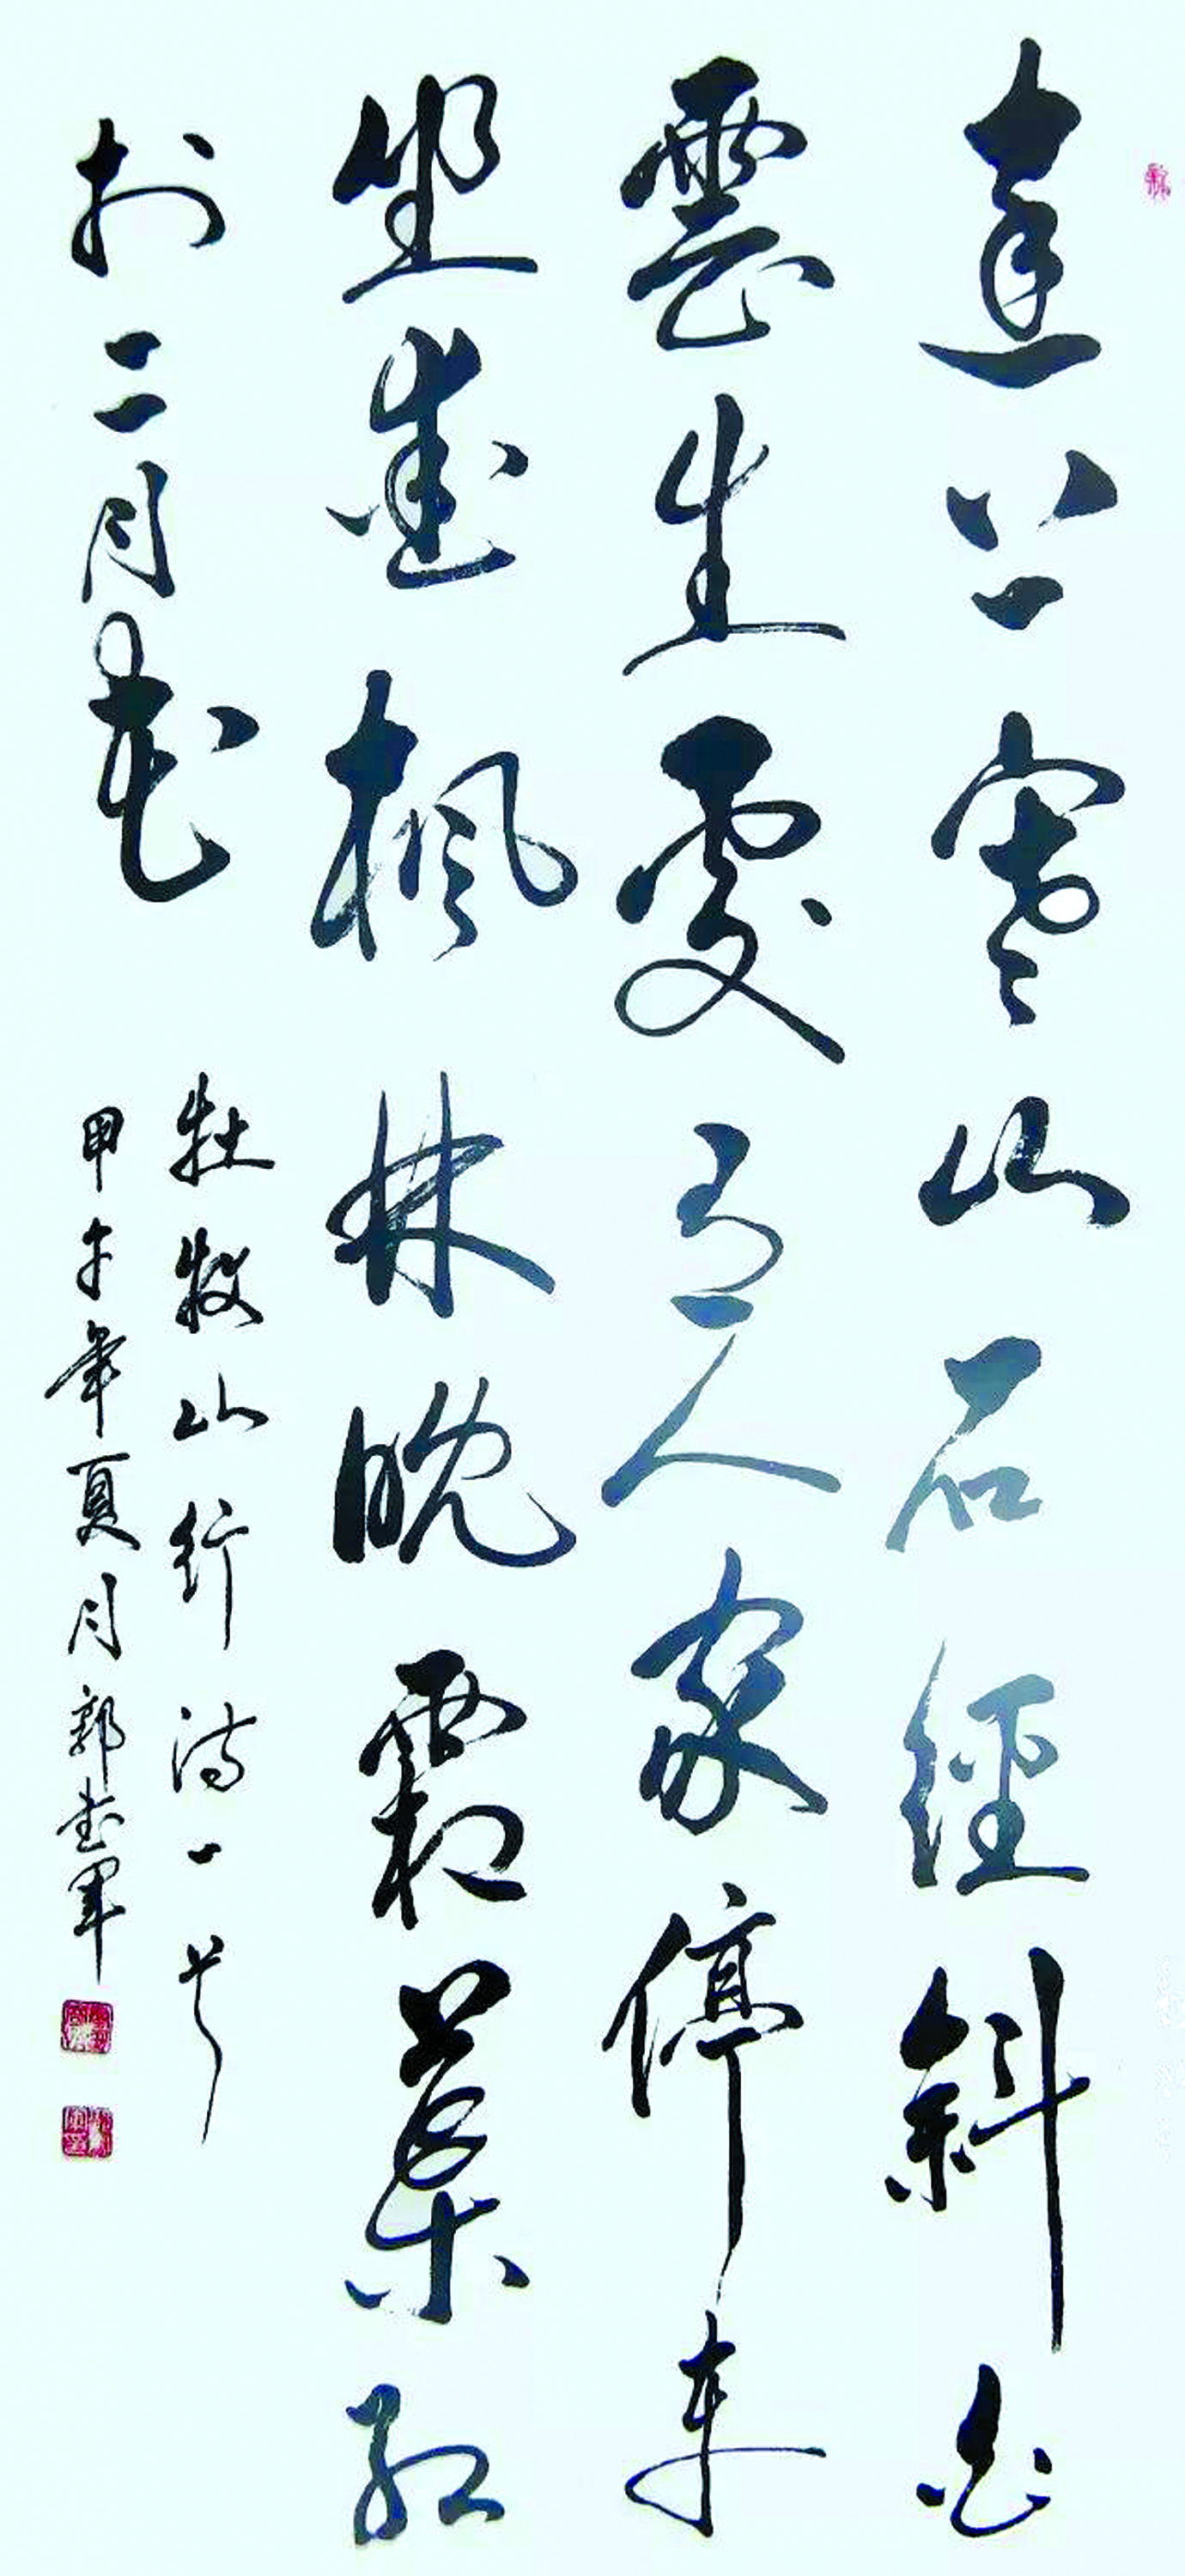 遠上寒山石經斜白
雲生處有人家停車
坐愛楓林晚霜葉紅
於二月花
杜牧山行詩一首
甲午年夏月郭軍